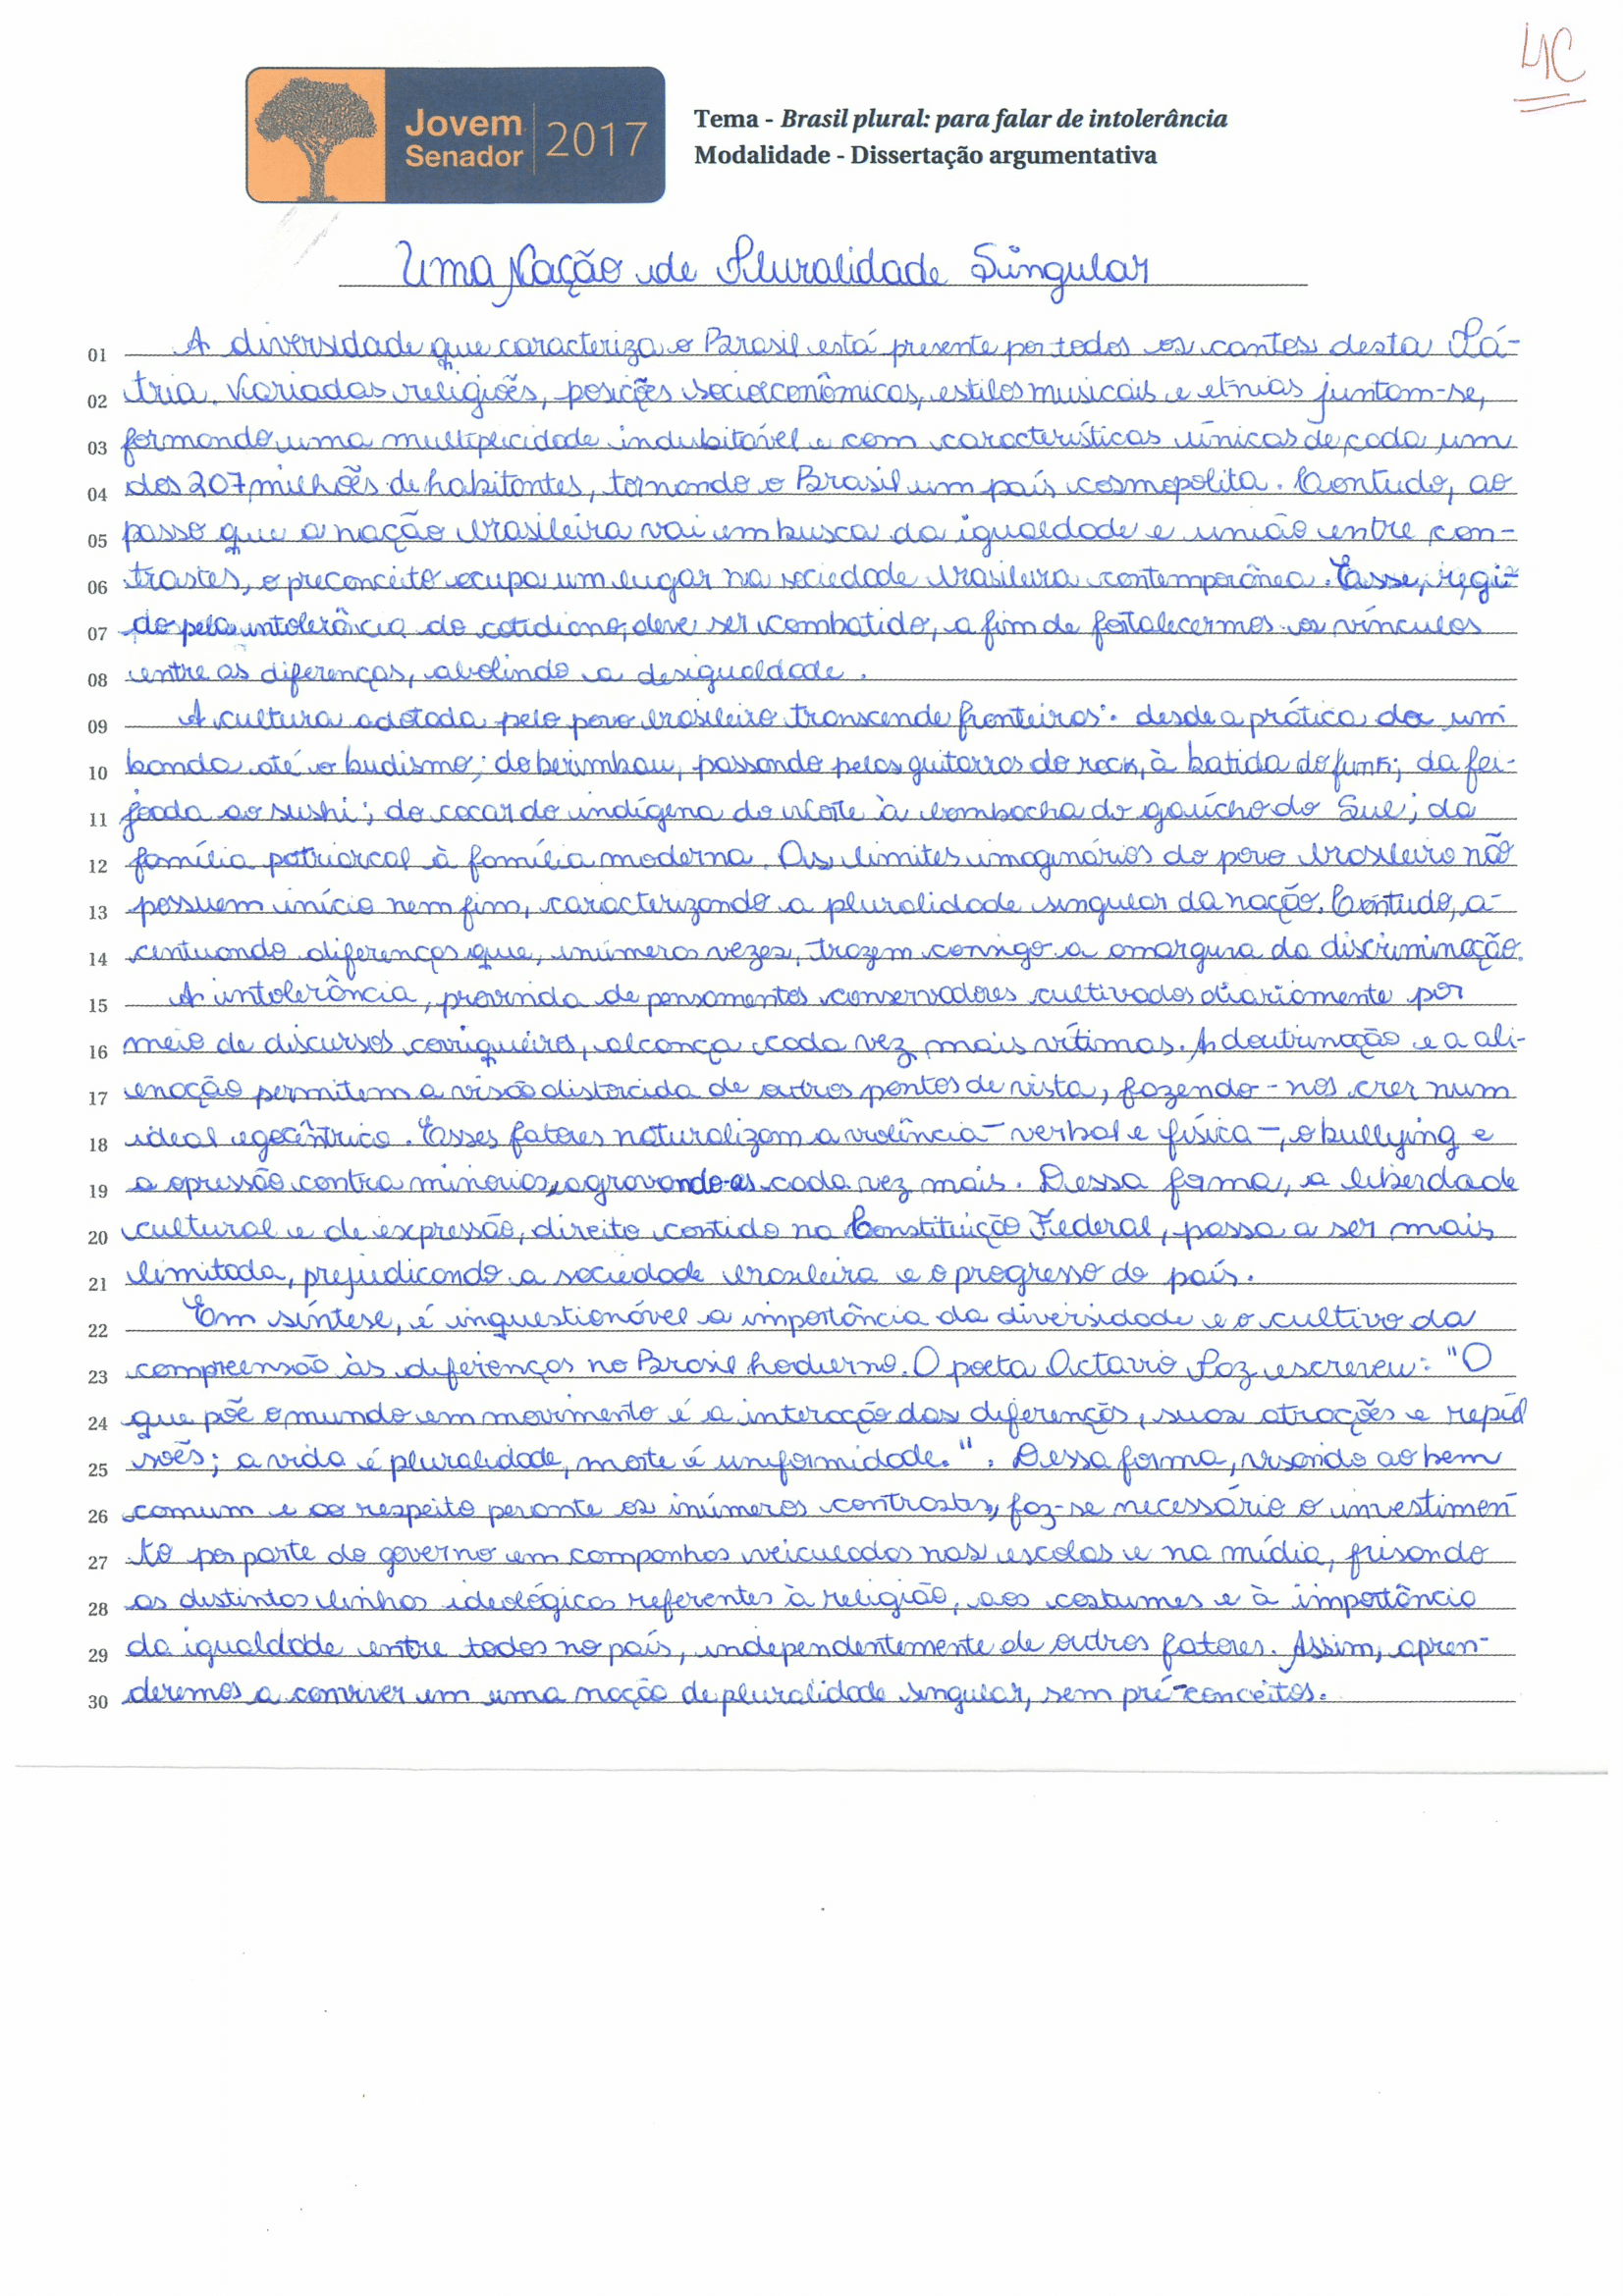 4C
Jovem
Senador
2017
Tema - Brasil plural: para falar de intolerância
Modalidade - Dissertação argumentativa
Uma Nação de Pluralidade Singular
01 A diversidade que caracteriza o Brasil está presente por todos os cantos desta Pá-
02 tria. Variadas religiões, posições socioeconômicas, estilos musicais e etnias juntam-se,
03 formando uma multiplicidade indubitável e com características únicas de cada um
04 dos 207 milhões de habitantes, tornando o Brasil um país cosmopolita. Contudo, ao
05 passo que a nação brasileira vai em busca da igualdade e união entre con-
06 trastes, o preconceito ocupa um lugar na sociedade brasileira contemporânea. Esse, regi-
07 do pela intolerância do cotidiano, deve ser combatido, a fim de fortalecermos os vínculos
08 entre as diferenças, abolindo a desigualdade.
09 A cultura adotada pelo povo brasileiro transcende fronteiras: desde a prática da um
10 banda até o budismo; do berimbau, passando pelas guitarras do rock, à batida do funk; da fei-
11 joada ao sushi; do cocar do indígena do Norte à bombacha do gaúcho do Sul; da
12 família patriarcal à família moderna. Os limites imaginários do povo brasileiro não
13 possuem início nem fim, caracterizando a pluralidade singular da nação. Contudo, a-
14 centuando diferenças que, inúmeras vezes, trazem consigo a amargura da discriminação.
15 A intolerância, provinda de pensamentos conservadores cultivados diariamente por
16 meio de discursos corriqueiros, alcança cada vez mais vítimas. A doutrinação e a ali-
17 enação permitem a visão distorcida de outros pontos de vista, fazendo-nos crer num
18 ideal egocêntrico. Esses fatores naturalizam a violência - verbal e física -, o bullying e
19 a opressão contra minorias, agravando-as cada vez mais. Dessa forma, a liberdade
20 cultural e de expressão, direito contido na Constituição Federal, passa a ser mais
21 limitada, prejudicando a sociedade brasileira e o progresso do país.
22 Em síntese, é inquestionável a importância da diversidade e o cultivo da
23 compreensão às diferenças no Brasil hodierno. O poeta Octavio Paz escreveu: "O
24 que põe o mundo em movimento é a interação das diferenças, suas atrações e repul
25 sões; a vida é pluralidade, morte é uniformidade.". Dessa forma, visando ao bem
26 comum e ao respeito perante os inúmeros contrastes, faz-se necessário o investimen
27 to por parte do governo em campanhas veiculadas nas escolas e na mídia, frisando
28 as distintas linhas ideológicas referentes à religião, aos costumes e à importância
29 da igualdade entre todos no país, independentemente de outros fatores. Assim, apren-
30 deremos a conviver em uma nação de pluralidade singular, sem pré-conceitos.